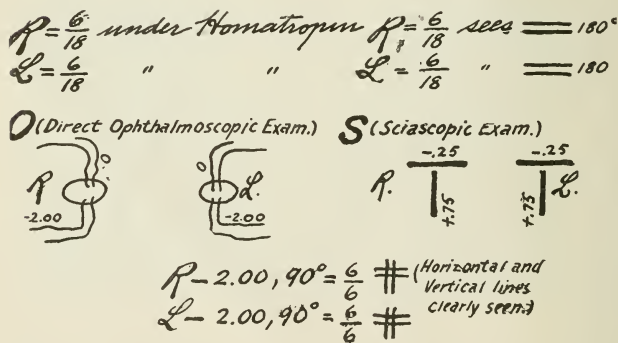 R = 6/18 under Homatropin R = 6/18 sees 180°
L = 6/18 " " L = 6/18 " 180
O (Direct Ophthalmoscopic Exam.) S (Sciascopic Exam.)
0 0 -.25 -.25
R L. R. L.
-2.00 -2.00 +.75 +.75
R - 2.00, 90° = 6/6 (Horizontal and
Vertical lines
L - 2.00, 90° = 6/6 clearly seen.)